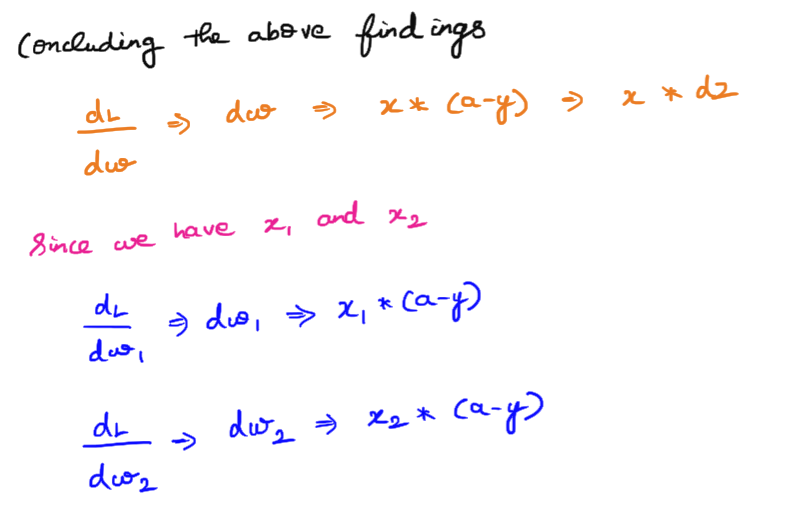 Concluding the above findings
dL/dw ⇒ dw ⇒ x * (a-y) ⇒ x * dz
Since we have x₁ and x₂
dL/dw₁ ⇒ dw₁ ⇒ x₁ * (a-y)
dL/dw₂ ⇒ dw₂ ⇒ x₂ * (a-y)